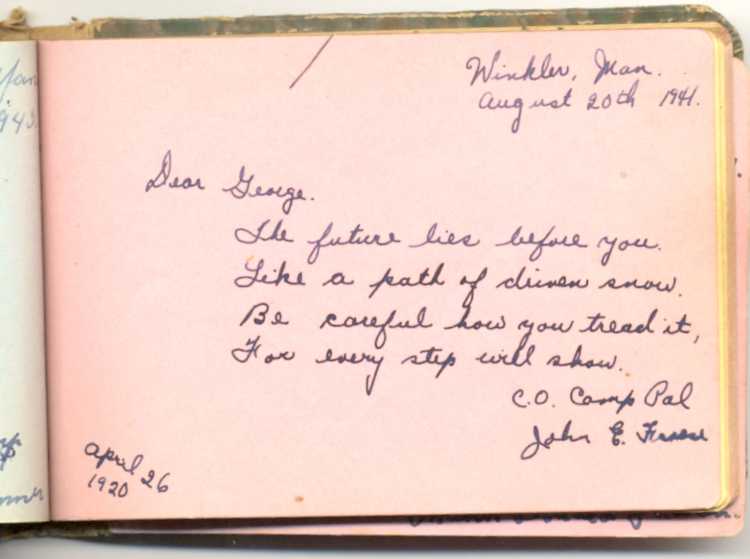 Winkler, Man.
August 20th 1941.
Dear George.
The future lies before you.
Like a path of driven snow.
Be careful how you tread it,
For every step will show.
C.O. Camp Pal
John E.
April 26
1920